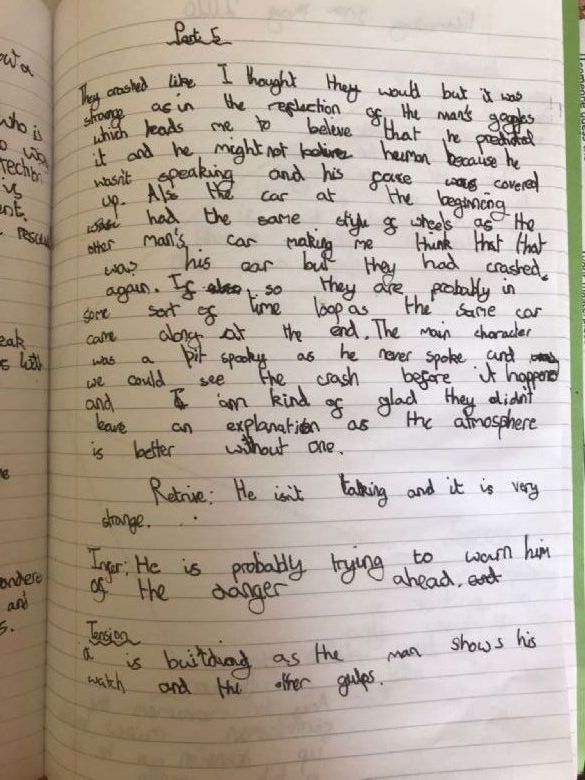 Part 5
They crashed like I thought they would but it was
strange as in the reflection of the man's goggles
which leads me to believe that he predicted
it and he might not human because he
wasn't speaking and his face was covered
up. Also the car at the beginning
had the same style of wheels as the
other man's car making me think that that
was his car but they had crashed
again. If so they are probably in
some sort of time loop as the same car
came along at the end. The main character
was a bit spooky as he never spoke and
we could see the crash before it happened
and I am kind of glad they didn't
leave an explanation as the atmosphere
is better without one.
Retrive: He isn't talking and it is very
strange.
Infer: He is probably trying to warn him
of the danger ahead.
Tension
is building as the man shows his
watch and the other gulps.